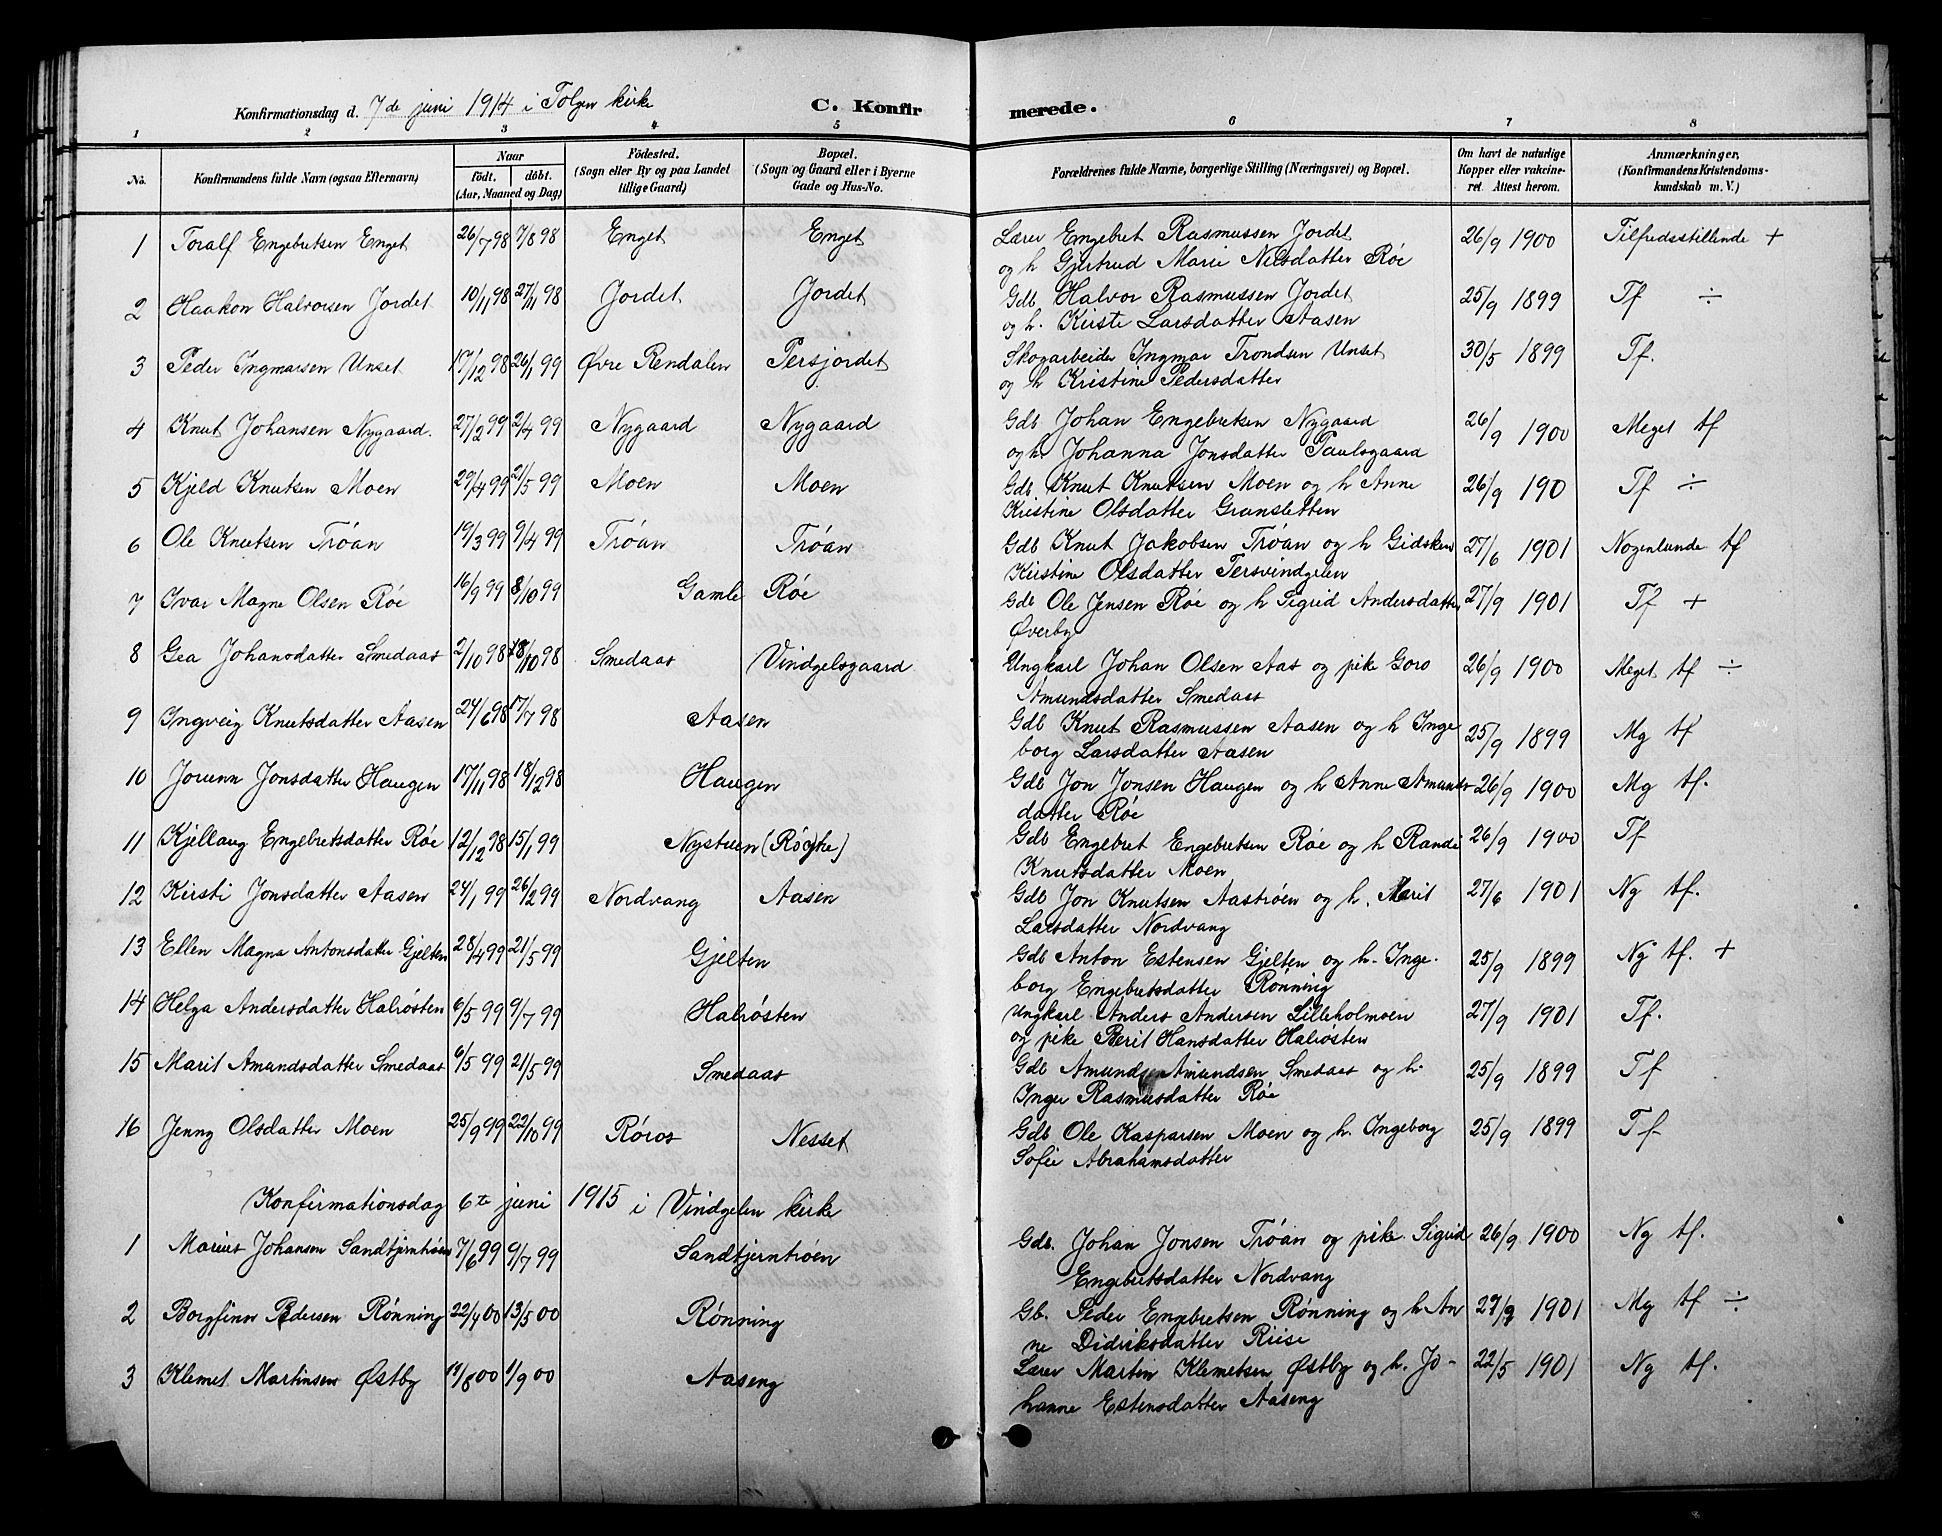 Konfirmationsdag d. 7de juni 1914 i Tolgen kirke C. Konfirmerede.
1 2 3 4 5 6 7 8
No. Konfirmandens fulde Navn (ogsaa Efternavn) Naar födt. döbt. (Aar, Maaned og Dag) Födested. (Sogn eller By og paa Landet tillige Gaard) Bopæl. (Sogn og Gaard eller i Byerne Gade og Hus-No. Forældrenes fulde Navne, borgerlige Stilling (Næringsvei) og Bopæl. Om havt de naturlige Kopper eller vakcineret. Attest herom. Anmærkninger, (Konfirmandens Kristendomskundskab m. V.)
1 Toralf Engebretsen Enget 26/7 98 7/8 98 Enget Enget Lærer Engebret Rasmussen Jordet 26/9 1900 Tilfredsstillende +
og h Gjertrud Marie Nilsdatter Røe
2 Haakon Halvorsen Jordet 10/11 98 27/11 98 Jordet Jordet Gdb Halvor Rasmussen Jordet 25/9 1899 Tf ÷
og h. Kirsti Larsdatter Aasen
3 Peder Ingmarsen Unset 17/12 98 26/1 99 Øvre Rendalen Persjordet Skogarbeider Ingmar Trondsen Unset 30/5 1899 Tf.
og h Kristine Pedersdatter
4 Knut Johansen Nygaard. 27/2 99 2/4 99 Nygaard Nygaard Gdb Johan Engebretsen Nygaard 26/9 1900 Meget tf
og h Johanna Jonsdatter Paulsgaard
5 Kjeld Knutsen Moen 29/4 99 21/5 99 Moen Moen Gdb. Knut Knutsen Moen og h Anne 26/9 190 Tf ÷
Kristine Olsdatter Gransletten
6 Ole Knutsen Trøan 19/3 99 9/4 99 Trøan Trøan Gdb Knut Jakobsen Trøan og h Gidsken 27/6 1901 Nogenlunde tf
Kirstine Olsdatter Tersvindgelen
7 Ivar Magne Olsen Røe 16/9 99 8/10 99 Gamle Røe Gdb Ole Jensen Røe og h Sigrid Andersdatter 27/9 1901 Tf +
Øverby
8 Gea Johansdatter Smedaas 2/10 98 18/10 98 Smedaas Vindgelsgaard Ungkarl Johan Olsen Aas og pike Goro 26/9 1900 Meget tf ÷
Amundsdatter Smedaas
9 Ingveig Knutsdatter Aasen 24/6 98 17/7 98 Aasen Gdb Knut Rasmussen Aasen og h Inge 25/9 1899 Mg tf
borg Larsdatter Aasen
10 Jorunn Jonsdatter Haugen 17/11 98 18/12 98 Haugen Gdb Jon Jonsen Haugen og h Anne Amunds 26/9 1900 Mg tf.
datter Røe
11 Kjellaug Engebretsdatter Røe 12/12 98 15/1 99 Nystuen Gdb Engebret Engebretsen Røe og h Randi 26/9 1900 Tf
Knutsdatter Moen
12 Kirsti Jonsdatter Aasen 24/1 99 26/2 99 Nordvang Aasen Gdb Jon Knutsen Aastrøen og h. Marit 27/6 1901 Ng tf.
Larsdatter Nordvang
13 Ellen Magna Antonsdatter Gjelten 28/4 99 21/5 99 Gjelten Gdb Anton Estensen Gjelten og h. Inge- 25/9 1899 Ng tf. +
borg Engebretsdatter Rønning
14 Helga Andersdatter Halrøsten 6/5 99 9/7 99 Halrøsten Ungkarl Anders Andersen Lilleholmoen 27/9 1901 Tf.
og pike Berit Hansdatter Halrøsten
15 Marit Amundsdatter Smedaas 6/5 99 21/5 99 Smedaas Gdb Amund Amundsen Smedaas og h. 25/9 1899 Tf
Inger Rasmusdatter Røe
16 Jenny Olsdatter Moen 25/9 99 22/10 99 Røros Nesset Gdb Ole Kasparsen Moen og h. Ingeborg 25/9 1899 Tf
Sofie Abrahamsdatter
Konfirmationsdag 6te juni 1915 i Vindgelen kirke
1 Marius Johansen Sandtjerntrøen 7/6 99 9/7 99 Sandtjerntrøen Gdb. Johan Jonsen Trøan og pike Sigrid 26/9 1900 Ng tf.
Engebretsdatter Nordvang
2 Borgfinn Pedersen Rønning 22/4 00 13/5 00 Rønning Gb. Peder Engebretsen Rønning og h An 27/9 1901 Mg tf ÷
ne Didriksdatter Riise
3 Klemet Martinsen Østby 11/8 00 1/9 00 Aaseng Lærer Martin Klemetsen Østby og h. Jo- 22/5 1901 Ng tf.
hanne Estensdatter Aaseng